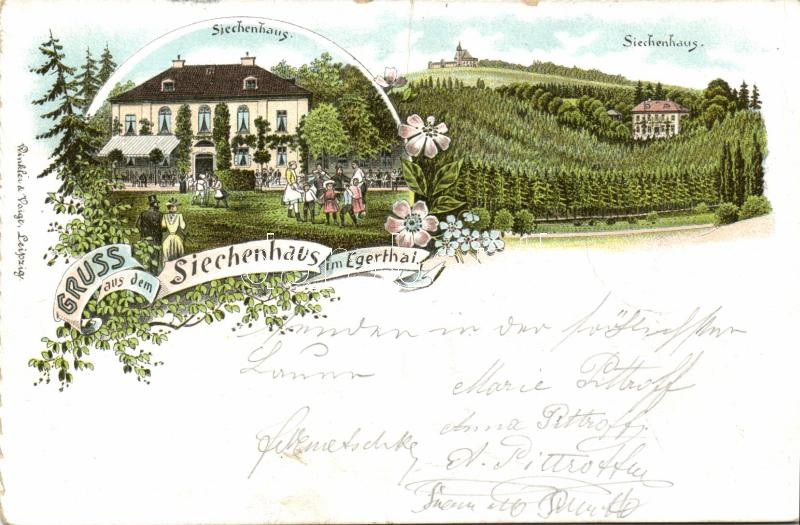 Siechenhaus.
Siechenhaus.
Winkler & Voigt, Leipzig
GRUSS
aus dem
Siechenhaus
im Egerthal.
senden in der fröhlichsten
Laune
Marie Pittroff
Anna Pittroff
A. Pittroff